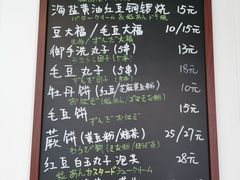 海盐黄油红豆铜锣烧 15元
バタークリーム&粒あんドラ焼
豆大福/毛豆大福 10/15元
豆大福/ずんだ大福
御手洗丸子(5串) 13元
みたらし団子(5本)
毛豆丸子(5串) 18元
ずんだ団子(5本)
牡丹饼(红豆/芝麻黄豆粉) 10元
おはぎ(粒あん/ゴマきな粉)
毛豆饼 15元
ずんだおはぎ
蕨饼(黄豆粉/焙茶) 25/27元
わらび餅(きな粉/ほうじ茶)
红豆白玉丸子泡芙 28元
粒あんカスタードシュークリーム